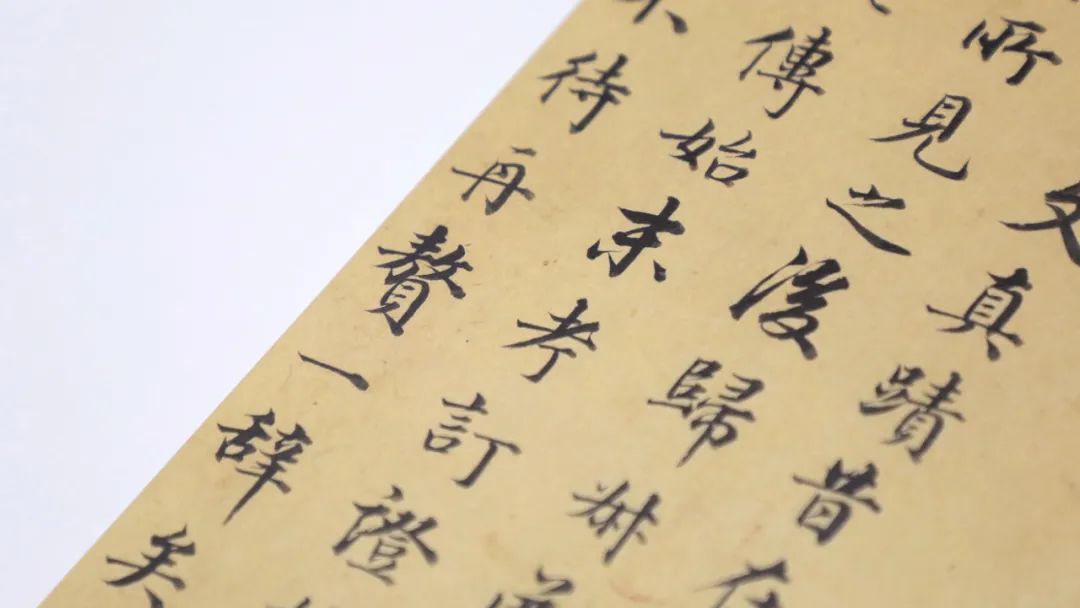 文真蹟昔在
所見之後歸
傳始末考訂證
不待再贅一辭矣